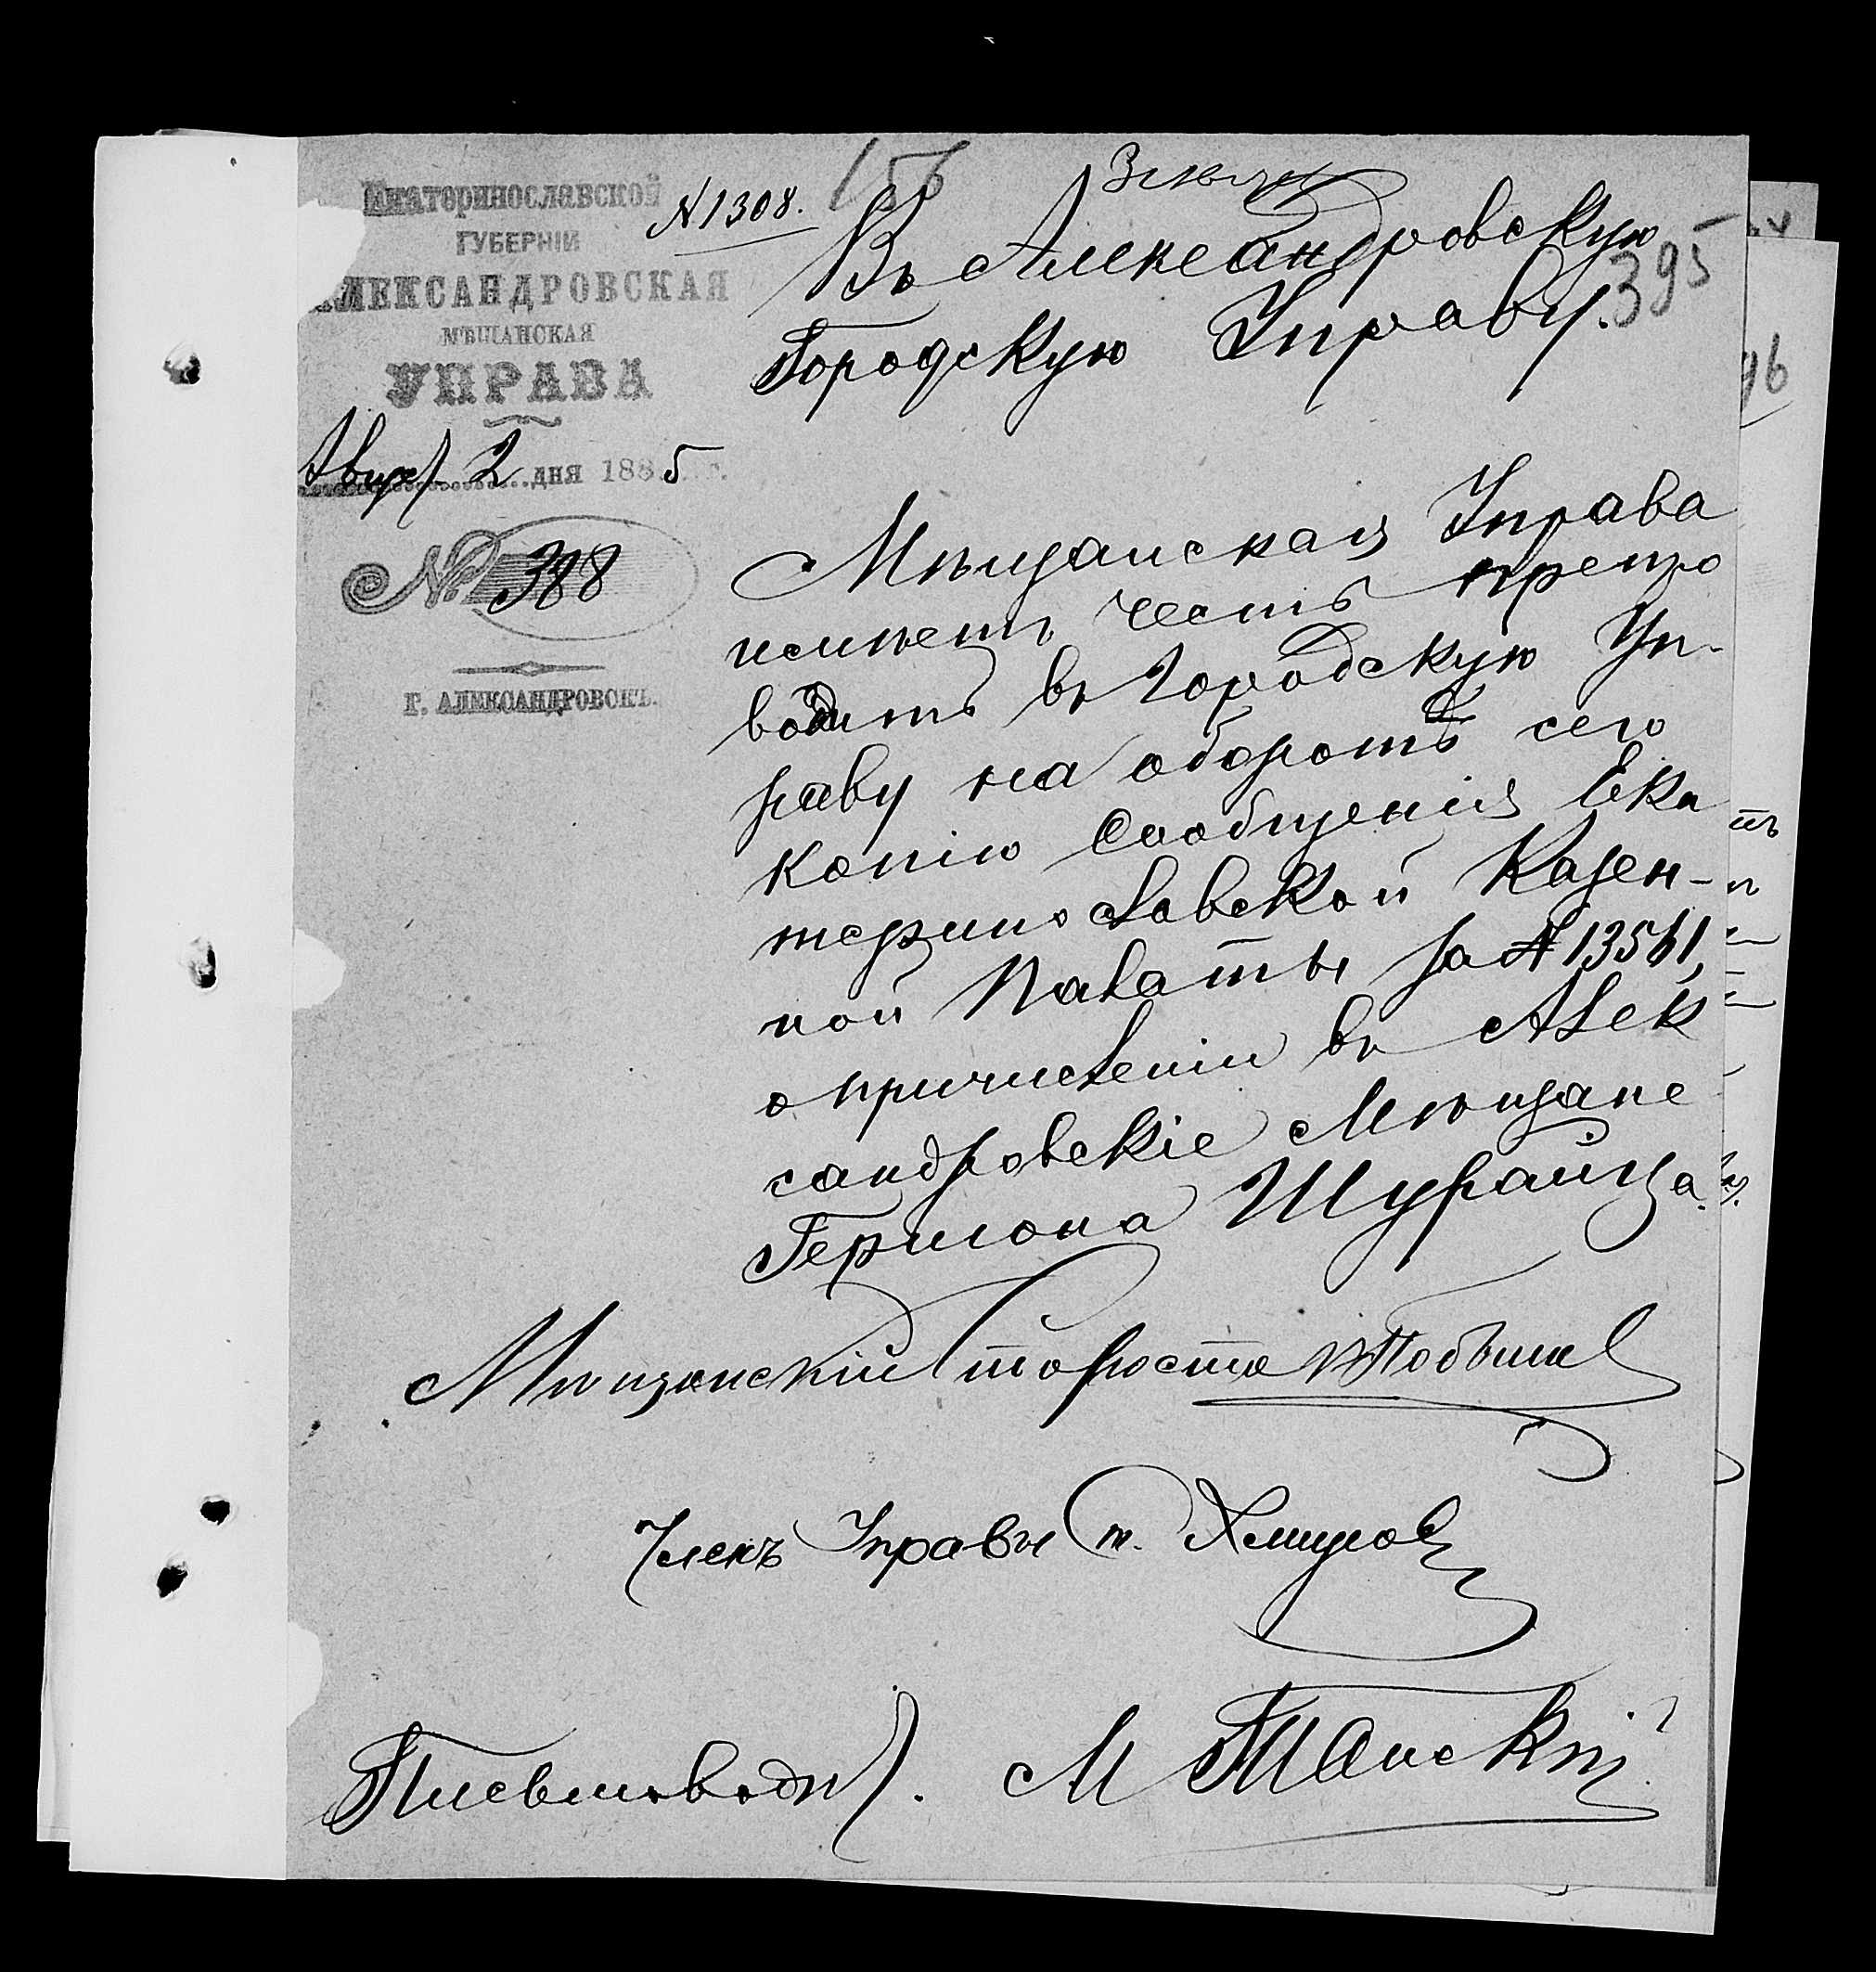 Екатеринославской
ГУБЕРНІИ
АЛЕКСАНДРОВСКАЯ
МѢЩАНСКАЯ
УПРАВА
Авгус 2 дня 1885 г.
№ 388
Г. АЛЕКСАНДРОВСКЪ.
N 1308.
156
395
Въ Александровскую
Городскую Управу.
Мѣщанская Управа
имѣетъ честь препро
водить въ Городскую Уп-
раву на оборотѣ сего
копію Сообщенія Ека
теринославской Казен-
ной Палаты за № 13561,
о причисленіи въ Алек
сандровскіе Мѣщане
Гермона Шурайца.
Мѣщанскій Староста
Членъ Управы
Письмовод. М
96